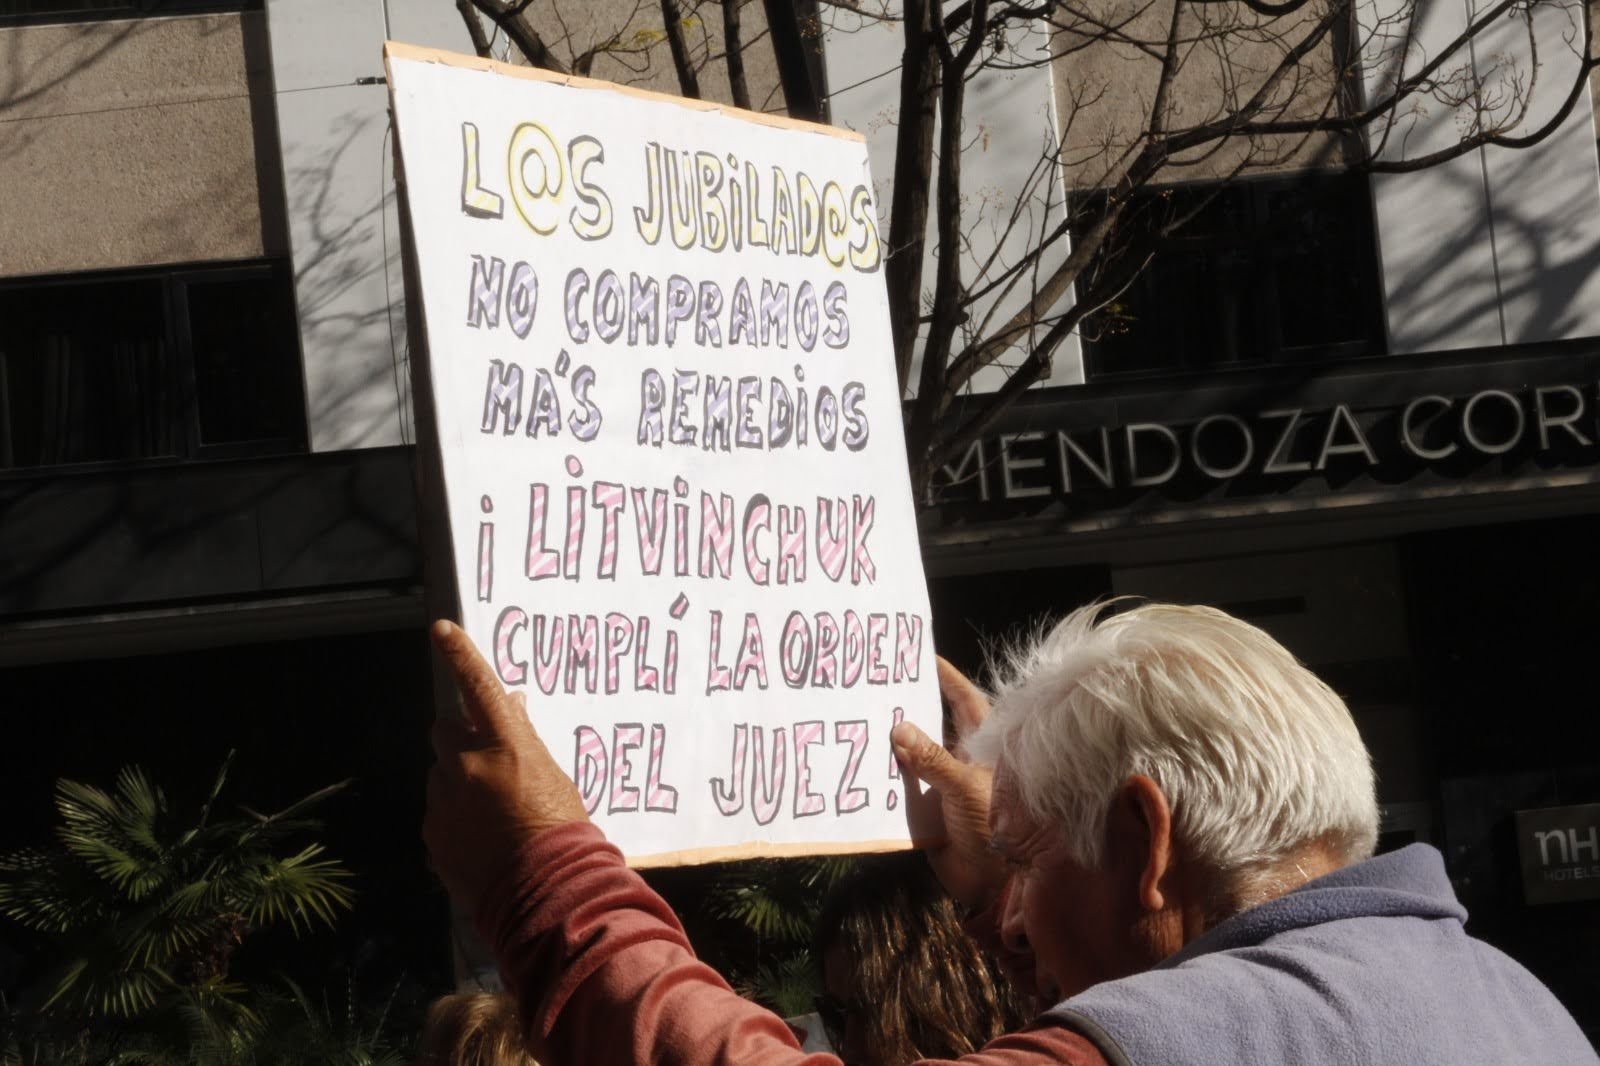 L@S JUBiLAD@S
NO COMPRAMOS
MÁS REMEDiOS
¡LiTViNCHUK
CUMPLÍ LA ORDEN
DEL JUEZ!
MENDOZA COR
nH
HOTELS